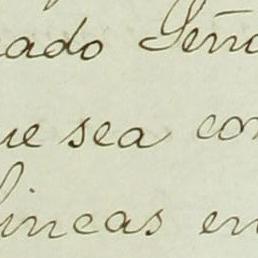 ado Seño
ue sea con
lineas en